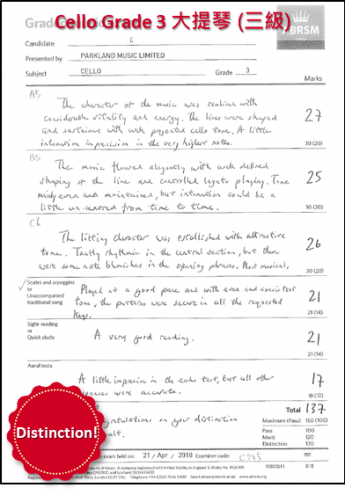 Cello Grade 3 大提琴 (三級)
ABRSM
Candidate
Presented by PARKLAND MUSIC LIMITED
Subject CELLO Grade 3
Marks
A5
The character of the music was realised with
considerable vitality and energy. The lines were shaped
and sustained with well projected cello tone. A little
intonation imprecision in the very highest notes.
27
30 (20)
B5
The music flowed elegantly with well defined
shaping of the line and controlled legato playing. Tone
mostly even and maintained, but intonation could be a
little un-centred from time to time.
25
30 (20)
C6
The lilting character was established with attractive
tone. Tautly rhythmic in the central section, but there
were some note blemishes in the opening phrases. Most musical.
26
30 (20)
Scales and arpeggios
or
Unaccompanied
traditional song
Played at a good pace and with even and consistent
tone, the patterns were secure in all the requested
keys.
21
21 (14)
Sight-reading
or
Quick study
A very good reading.
21
21 (14)
Aural tests
A little imprecise in the echo test, but all other
answers were accurate.
17
18 (12)
Total 137
Maximum (Pass) 150 (100)
Pass 100
Merit 120
Distinction 130
on your distinction
Distinction!
held on 21 / Apr / 2018 Examiner code: